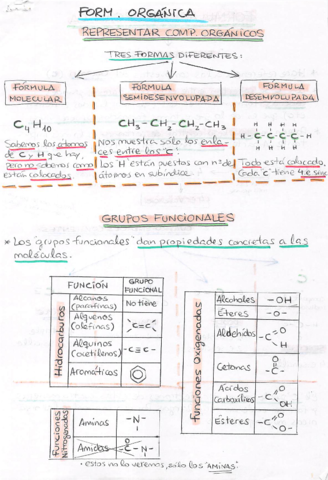 FORM. ORGÁNICA
REPRESENTAR COMP. ORGÁNICOS
TRES FORMAS DIFERENTES:
FÓRMULA MOLECULAR
FÓRMULA SEMIDESENVOLUPADA
FÓRMULA DESENVOLUPADA
C4H10
CH3-CH2-CH2-CH3
H H H H
H-C-C-C-C-H
H H H H
Sabemos los átomos
de C y H que hay,
pero no sabemos como
están colocados
Nos muestra sólo los enla-
ces entre los "C".
los 'H' están puestos con nº de
átomos en subíndice.
Todo está colocado.
Cada 'C' tiene 4 e⁻
GRUPOS FUNCIONALES
* Los grupos funcionales dan propiedades concretas a las
moléculas.
Hidrocarburos
FUNCIÓN GRUPO FUNCIONAL
Alcanos (parafinas) No tiene
Alquenos (olefinas) C=C
Alquinos (acetilenos) -C≡C-
Aromáticos
Funciones Oxigenadas
Alcoholes -OH
Éteres -O-
Aldehídos -C O H
Cetonas O -C-
Ácidos carboxílicos -C O OH
Ésteres -C O O-
Funciones Nitrogenadas
Aminas -N-
Amidas O -C-N-
· estas no lo veremos, sólo las "AMINAS"